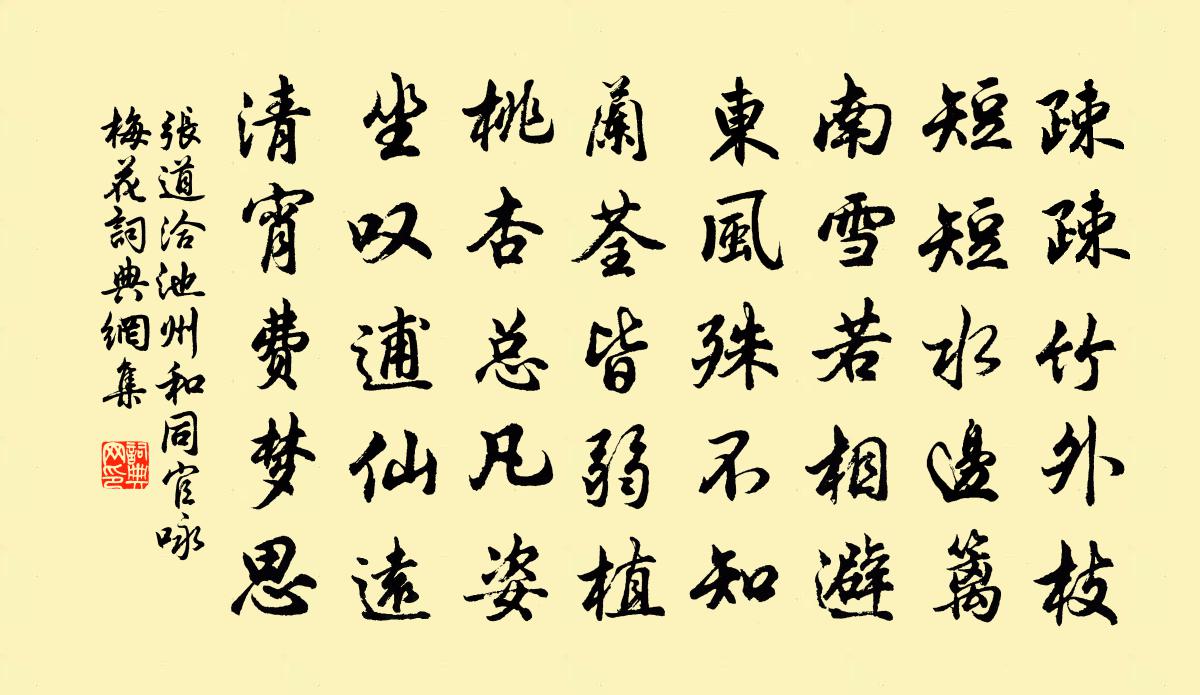 疎疎竹外枝
短短水邊籬
南雪若相避
東風殊不知
蘭荃皆弱植
桃杏总凡姿
坐叹逋仙遠
清宵费梦思
張道洽池州和同官咏
梅花詞典網集
詞典网印